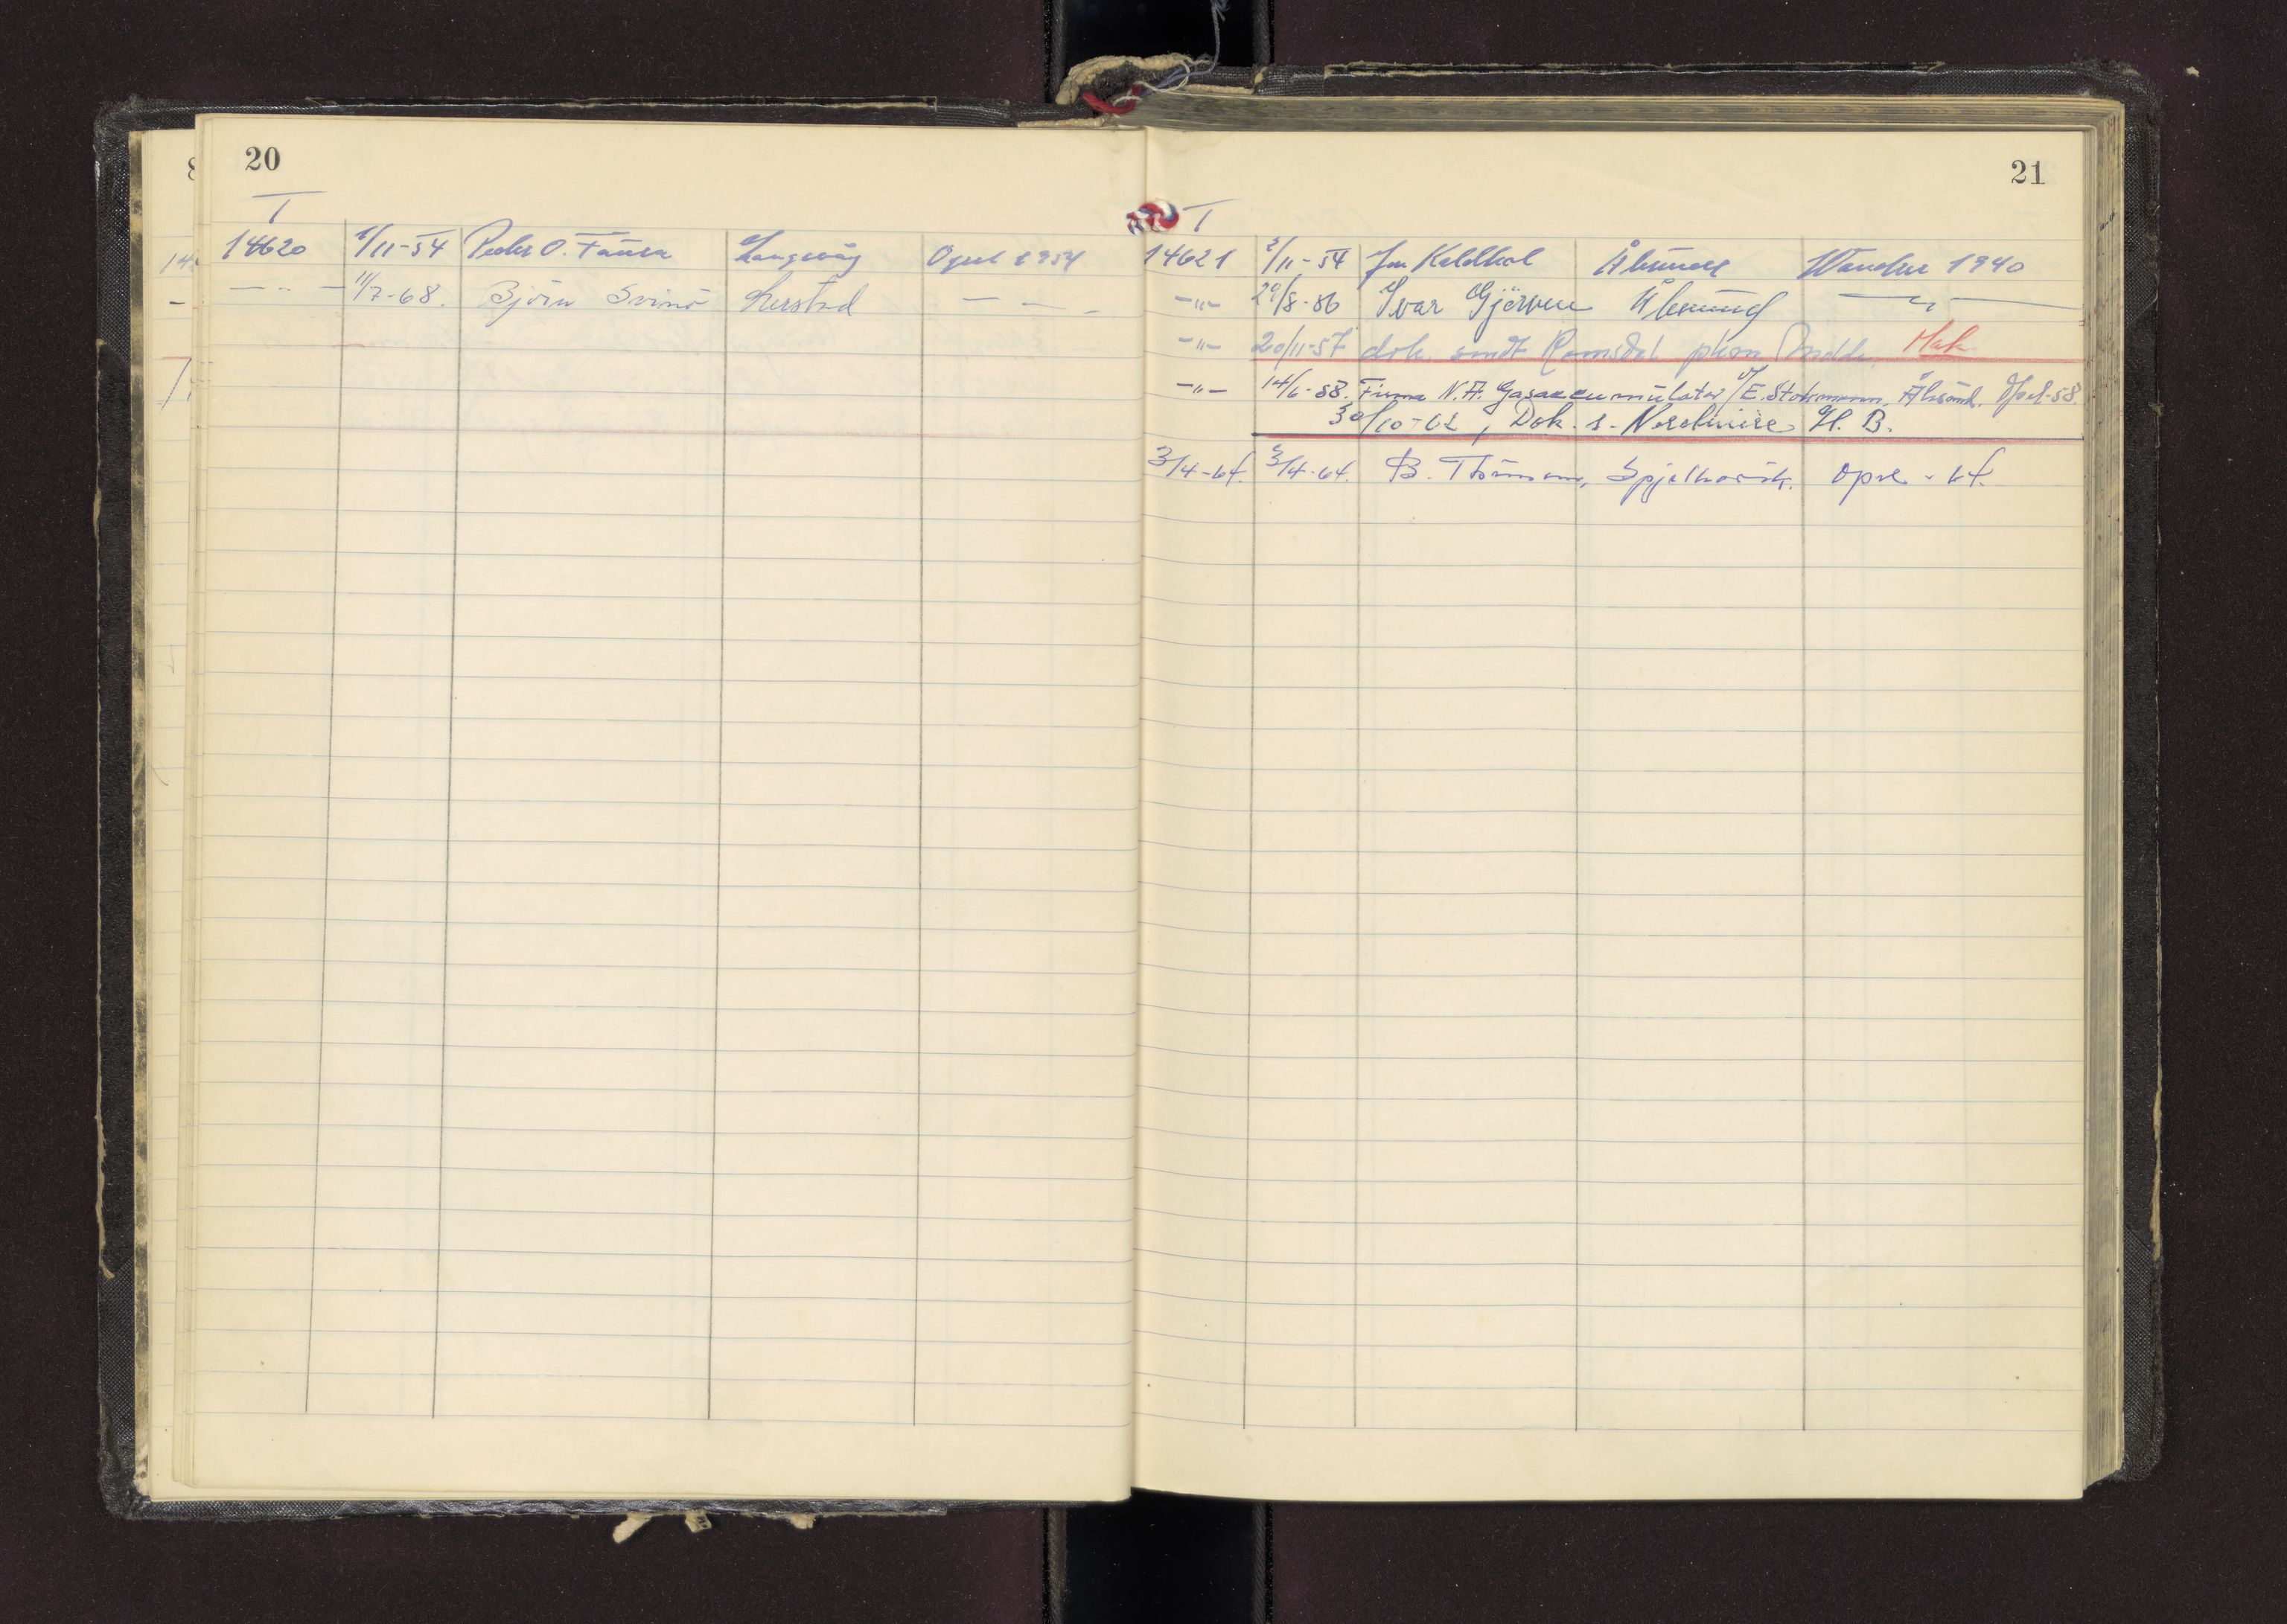 20
T
14620 1/11-54 Peder O. Fausa Langevåg Opel 1954
— " — 11/7-68. Björn Svinö Larstad — —
21
T
14621 2/11-54 Jon Kaldhol Ålesund Wanderer 1940
—"— 29/8-56 Ivar Gjörven Ålesund — " —
—"— 20/11-57 dok. sendt Romsdal pkm Molde. Hak
—"— 14/6-58. Firma N.A. Gasaccumulator v/E. Stokmann. Ålesund. Opel-58.
30/10-62, Dok. s. H. B.
3/4-64. 3/4-64. B. Spjelkavik. Opel - 64.